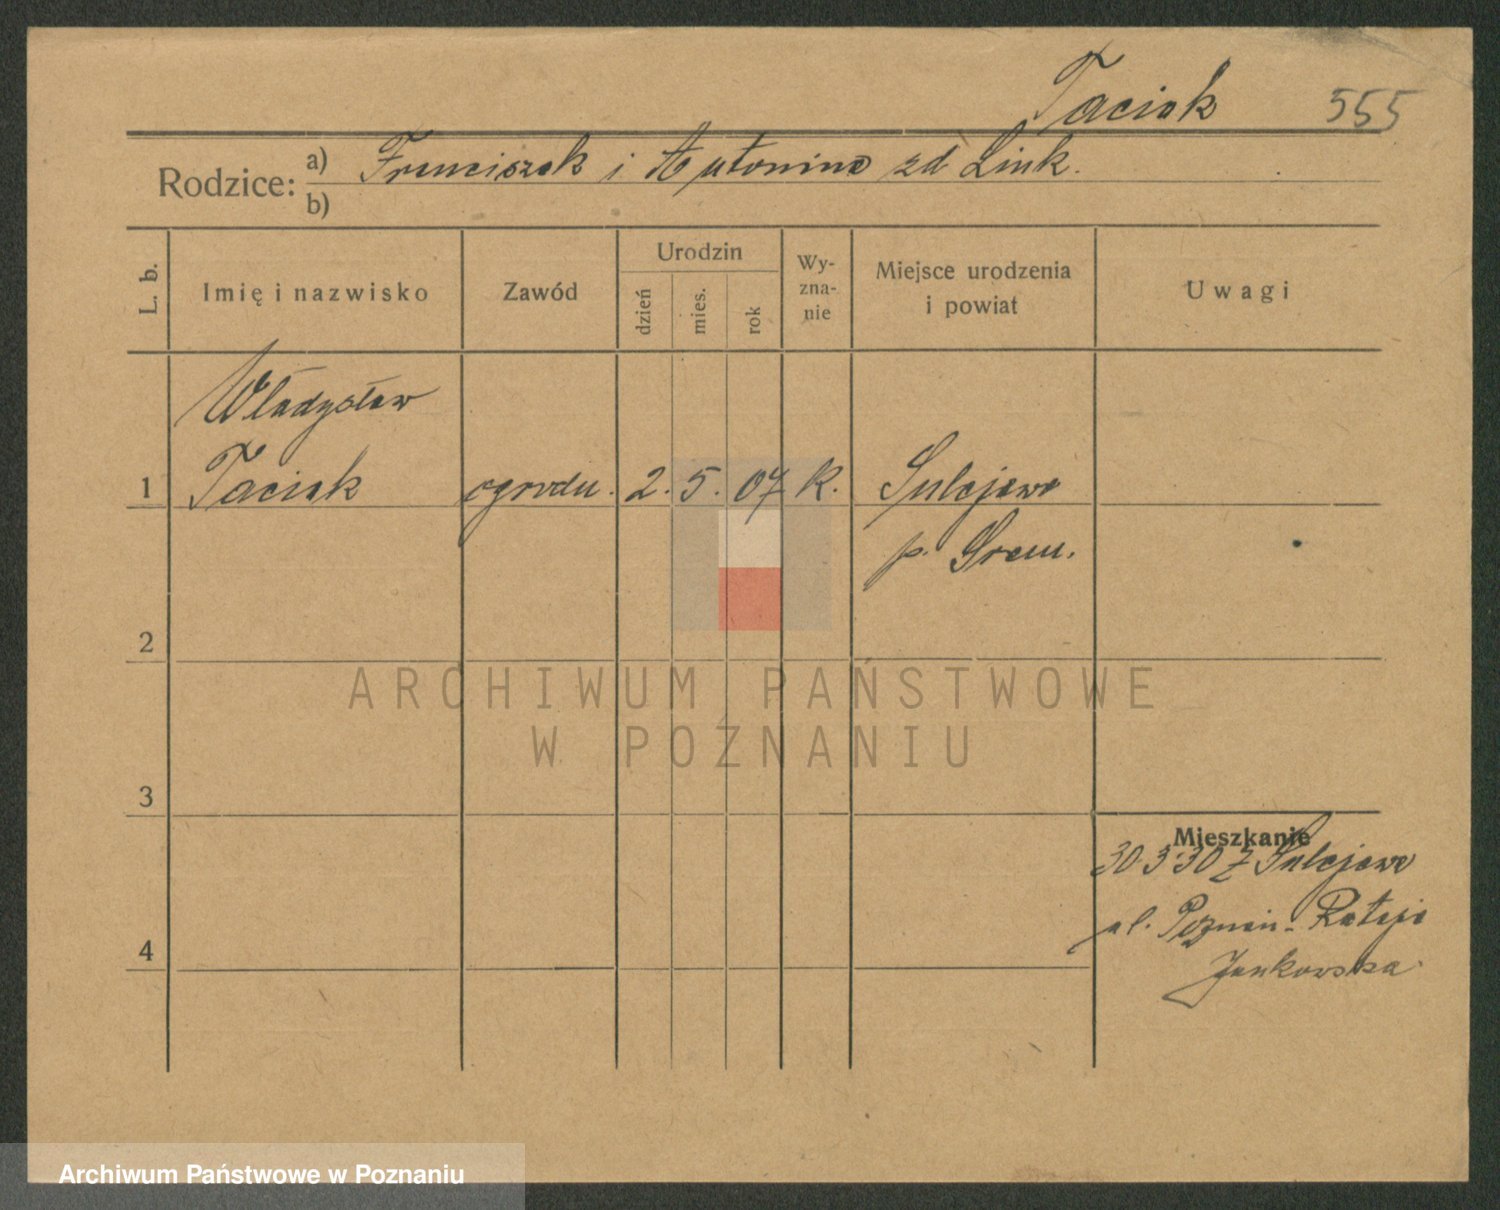 Taciak 555
Rodzice: a) Franciszek i Antonina zd Link.
b)
L. b. Imię i nazwisko Zawód Urodzin dzień mies. rok Wy-zna-nie Miejsce urodzenia i powiat Uwagi
Władysław
1 Taciak ogrodn. 2. 5. 07 k. Sulejewo
p. Śrem.
2
ARCHIWUM PAŃSTWOWE
W POZNANIU
3
Mieszkanie
30.3.30 z Sulejewo
ul. Poznań - Rataje
4
Jankowska
Archiwum Państwowe w Poznaniu